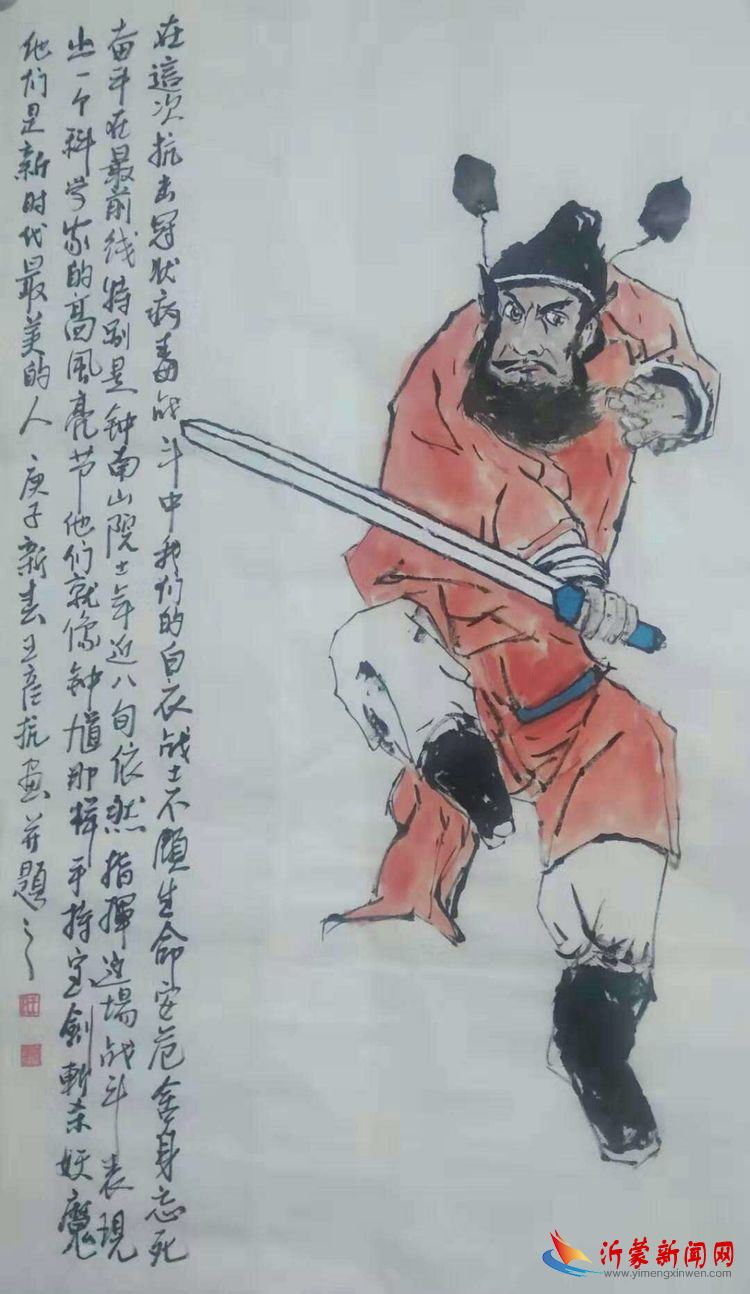 在這次抗击冠状病毒战斗中我们的白衣战士不顾生命安危舍身忘死
奋斗在最前线特别是钟南山院士年近八旬依然指揮这場战斗表現
出一个科学家的高风亮节他们就像钟馗那样手持宝劍斬杀妖魔
他们是新时代最美的人 庚子新春王彦抗画并題之
沂蒙新闻网
www.yimengxinwen.com